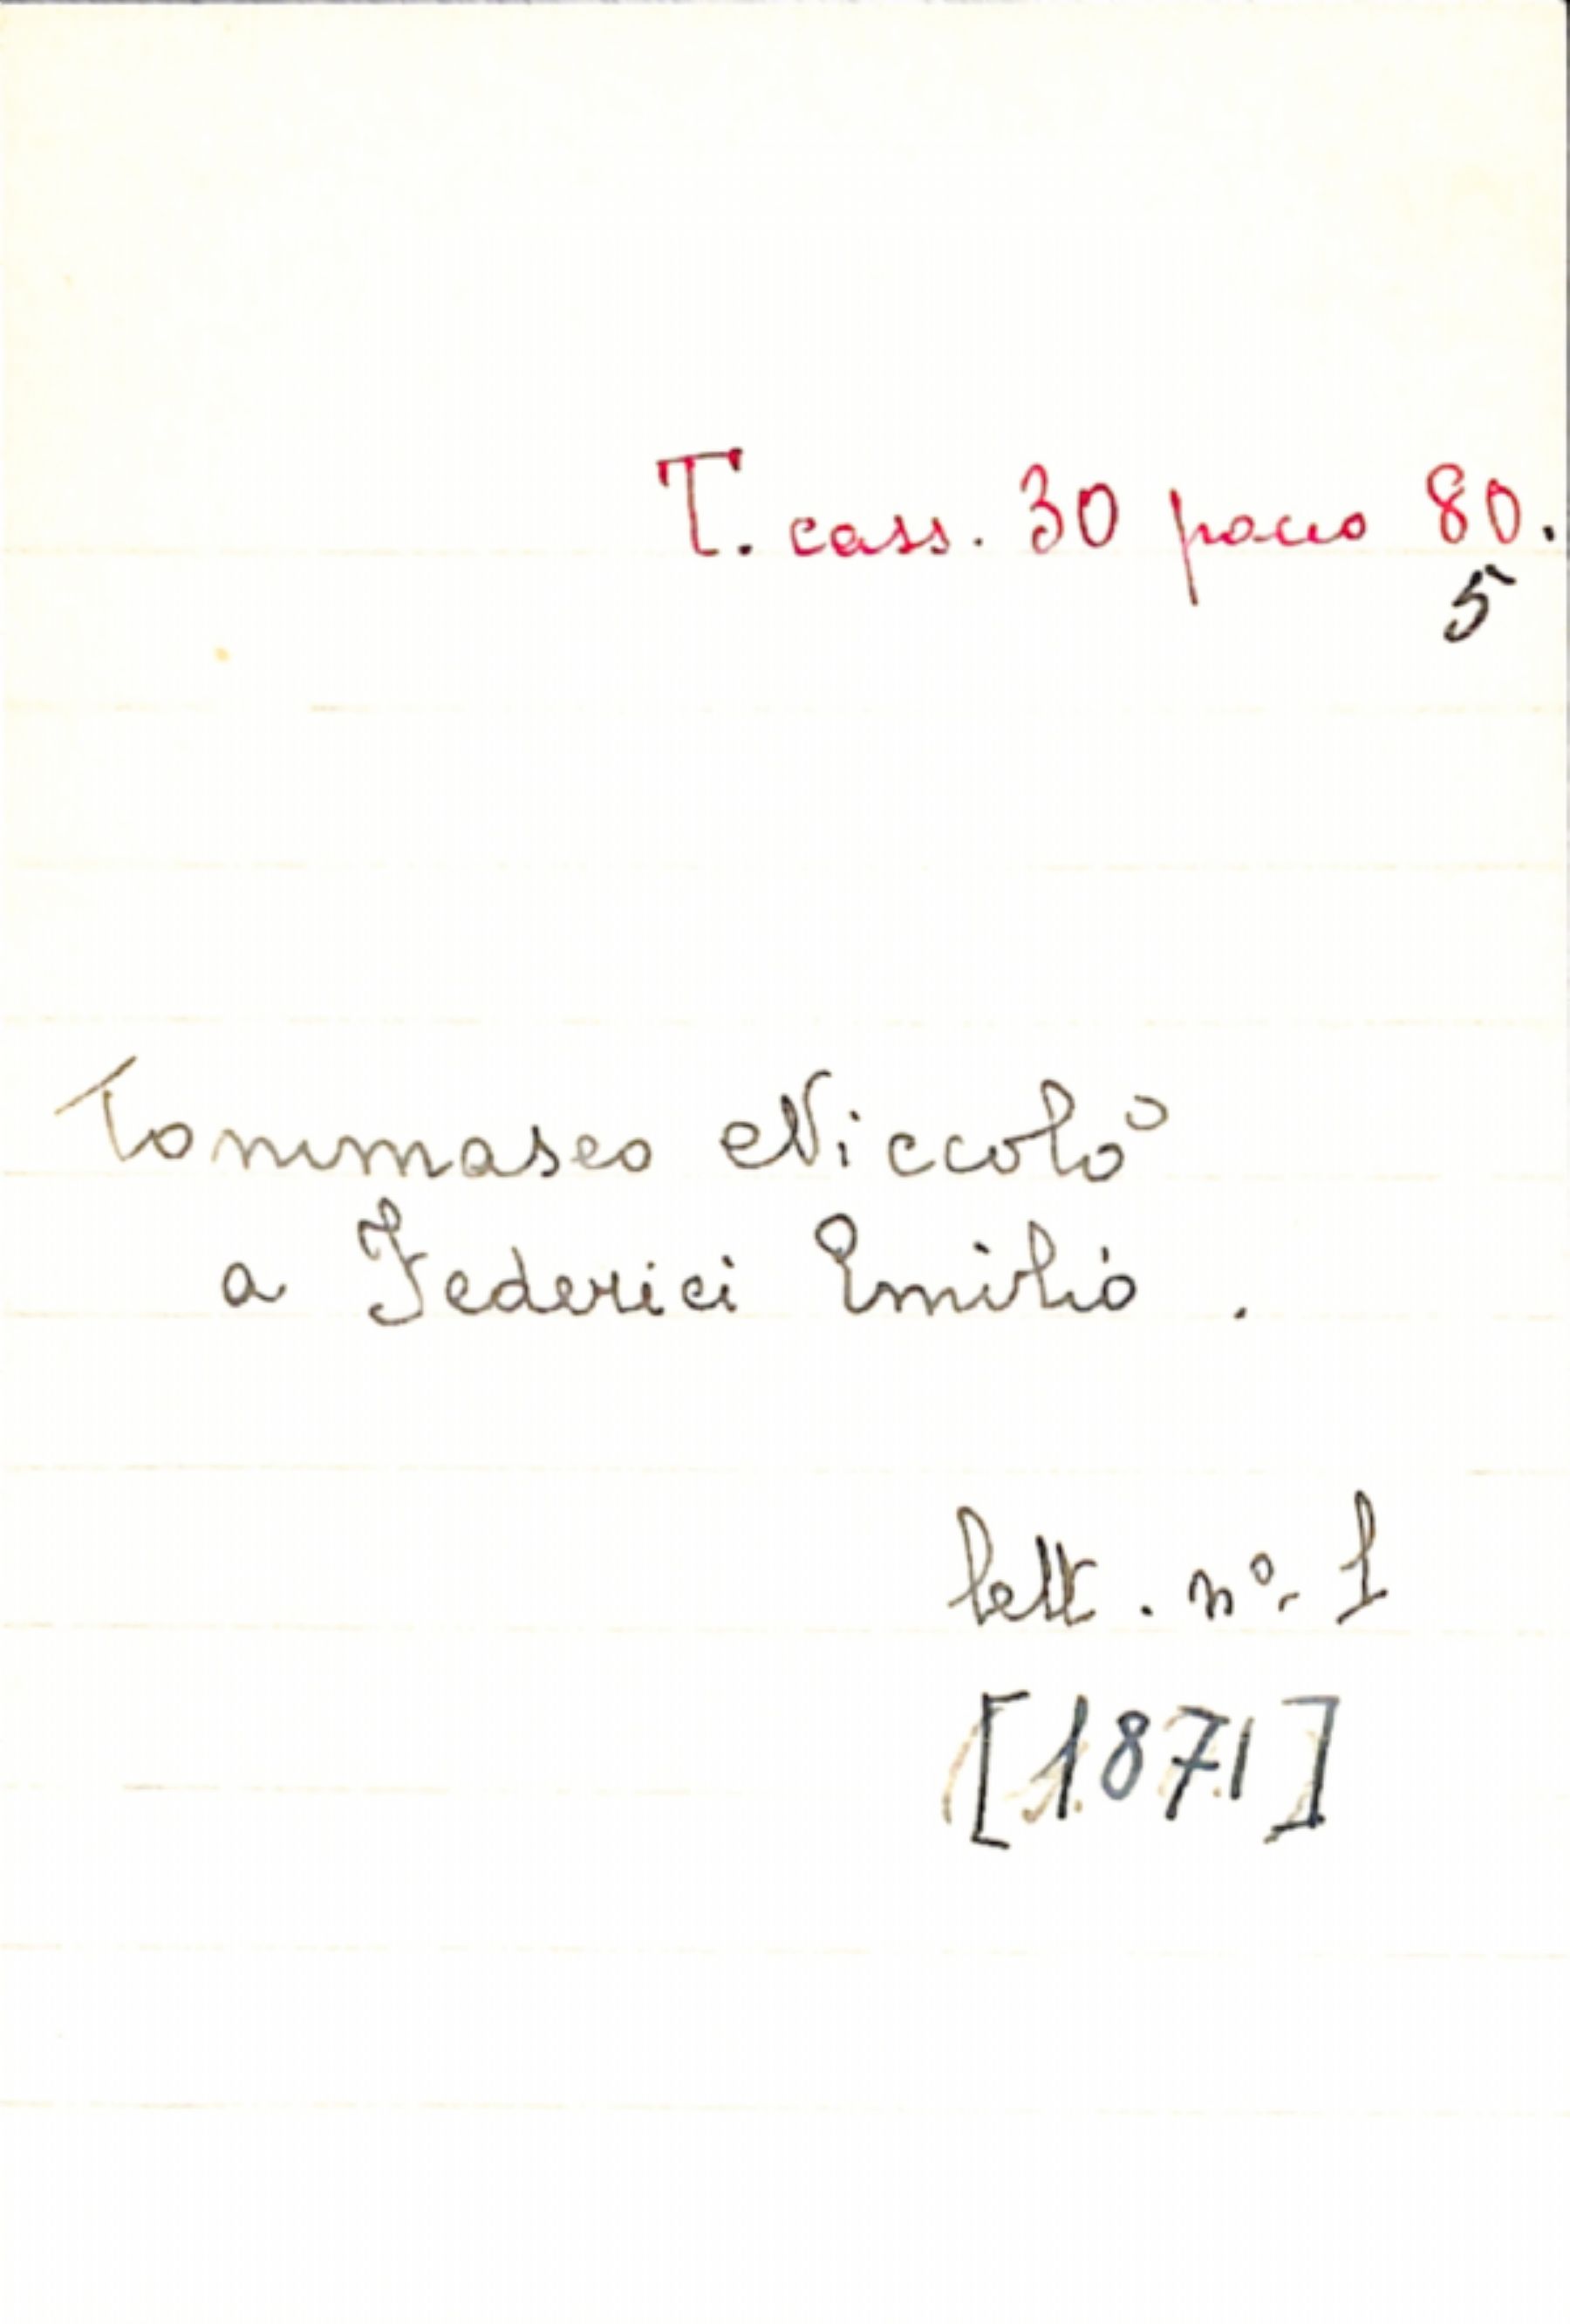 T. cass. 30 pacco 80.
5
Tommaseo Niccolò
a Federici Emilio.
lett. nº. 1
[1871]